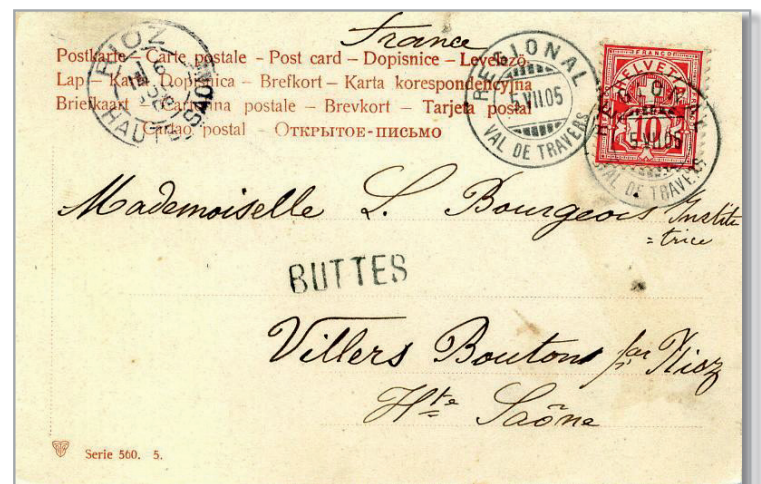 France
Postkarte - Carte postale - Post card - Dopisnice - Levelező
Lap - Karta Dopisnica - Brefkort - Karta korespondencyjna
Briefkaart - Cartolina postale - Brevkort - Tarjeta postal
Cartao postal - Открытое-письмо
RIOZ
HAUTE SAONE
REGIONAL
5 VII.05
VAL DE TRAVERS
FRANCO
HELVETIA
10
REGIONAL
5 VII.05
VAL DE TRAVERS
Mademoiselle L. Bourgeois Institu
=trice
BUTTES
Villers Bouton par Rioz
Hte Saône
Serie 560. 5.